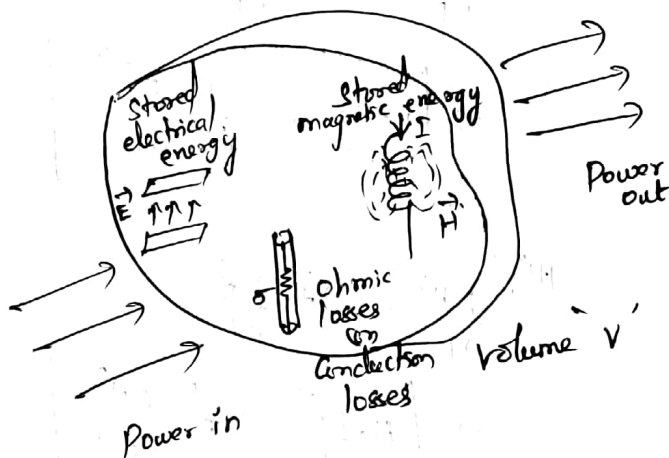 Stored
electrical
energy
E
Stored
magnetic energy
I
H
Power
out
σ
ohmic
losses
(or)
Conduction
losses
Volume 'v'
Power in